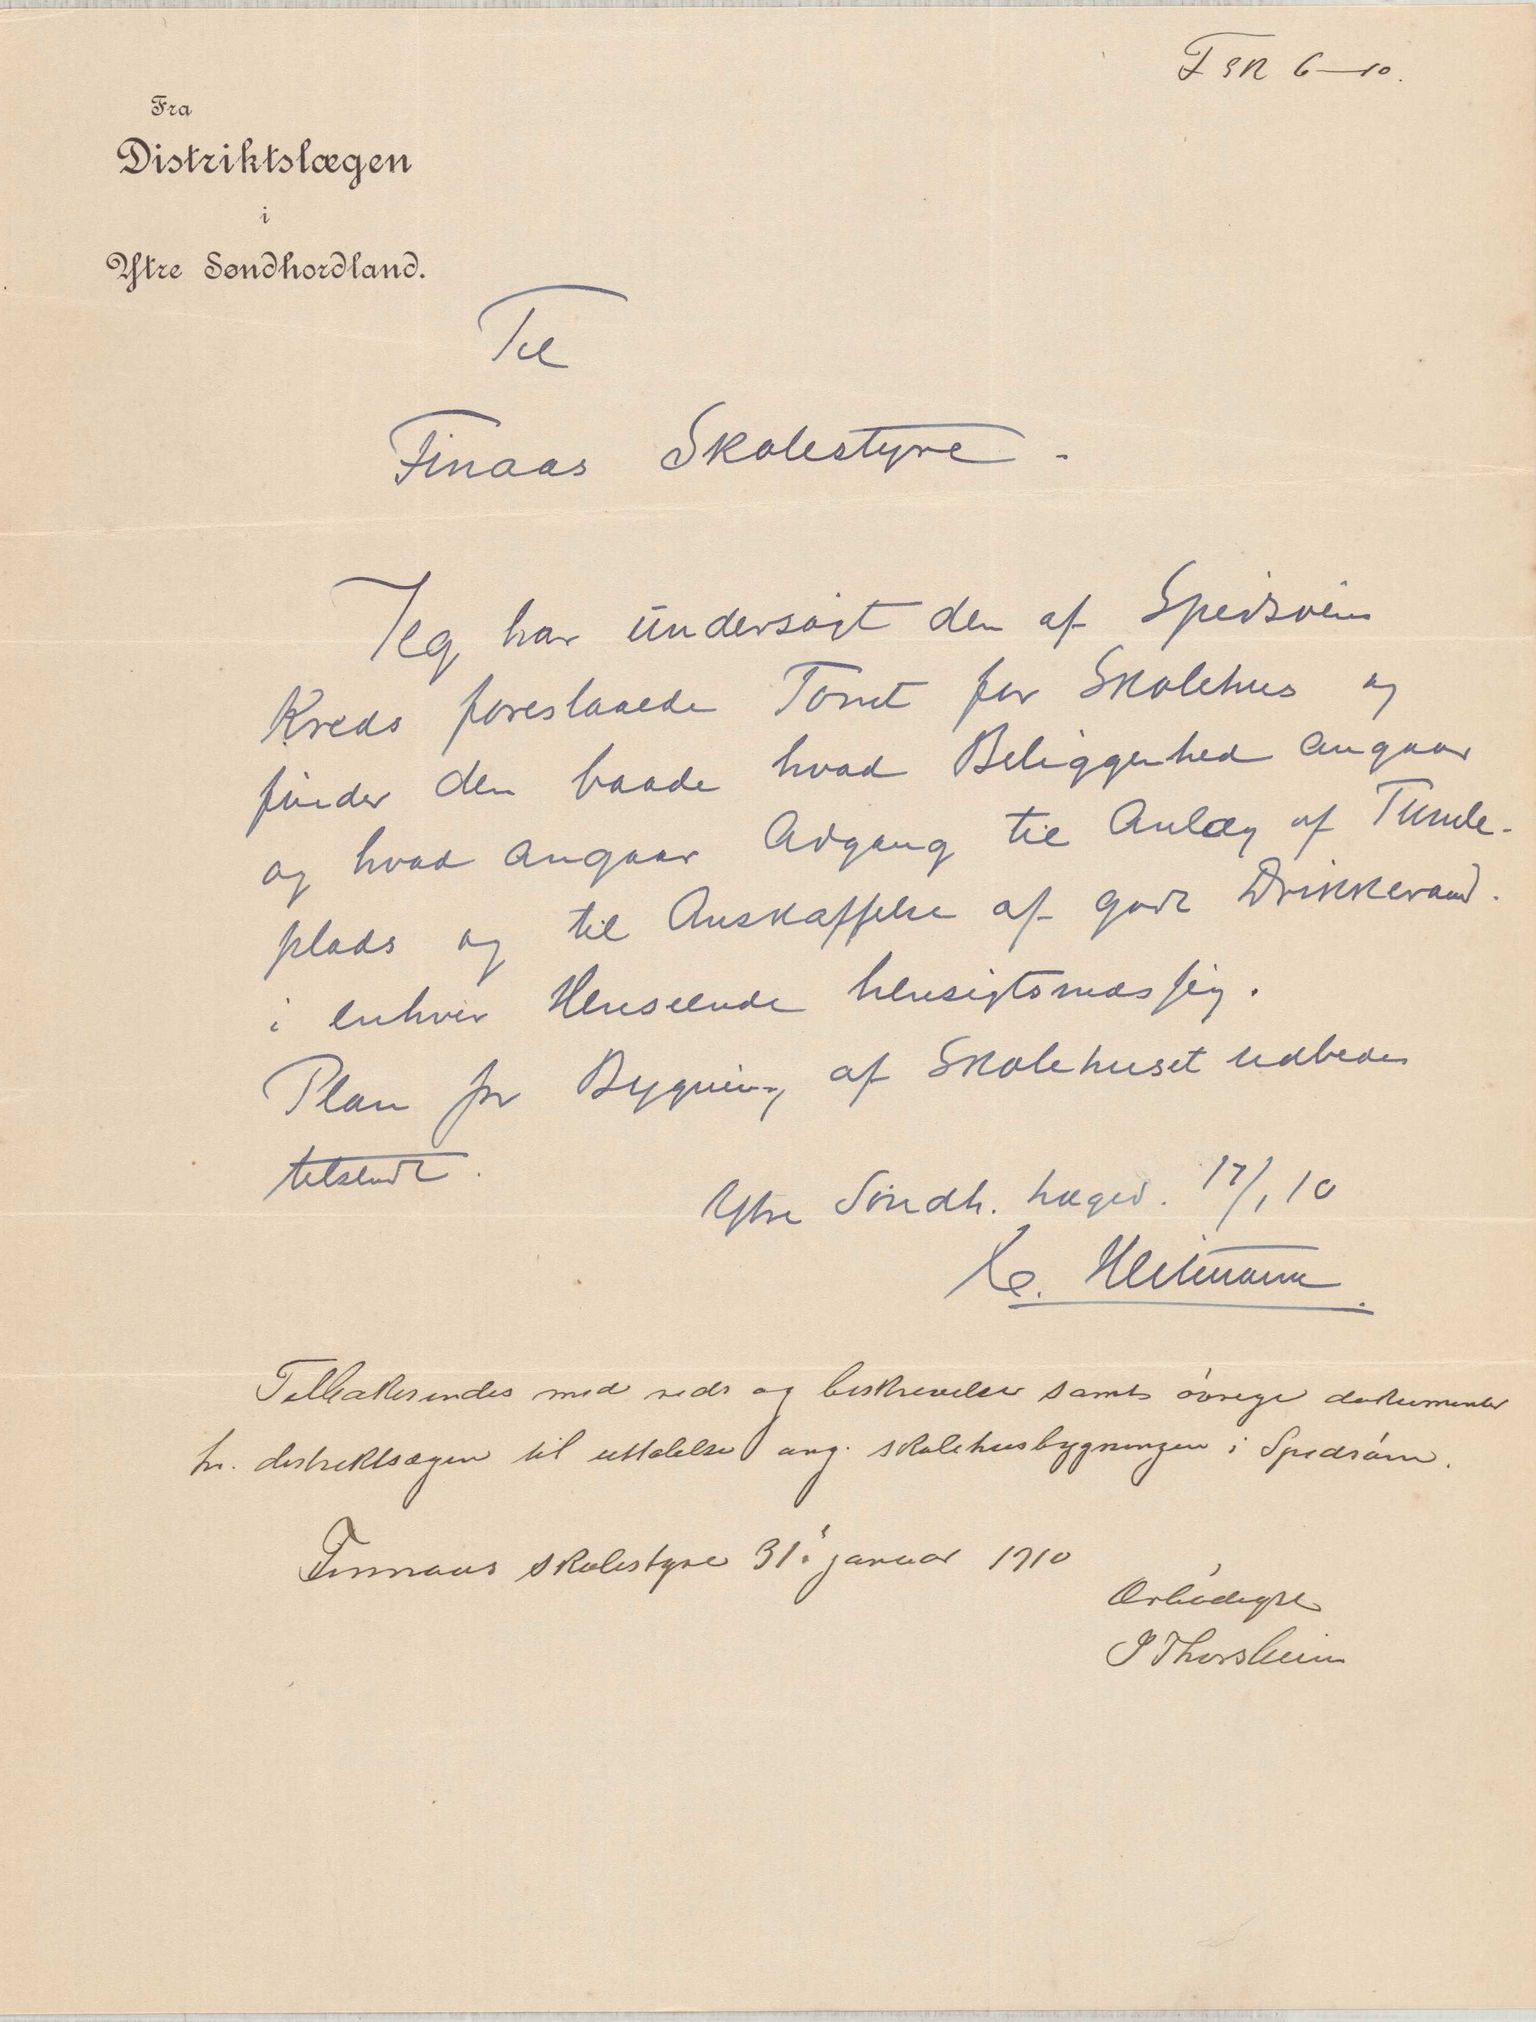 F SR 6-10.
Fra
Distriktslægen
i
Ytre Søndhordland.
Til
Finaas Skolestyre.
Jeg har undersøgt den af Spidsøiens
Kreds foreslaaede Tomt for Skolehus og
finder den baade hvad Beliggenhed angaar
og hvad angaar Adgang til Anlæg af Tumle-
plads og til Anskaffelse af godt Drikkevand
i enhver Henseende hensigtsmæssig.
Plan for Bygning af Skolehuset udbedes
tilsendt.
Ytre Søndh. Læged. 17/1 10
C. Heitmann.
Tilbakesendes med og beskrivelse samt øvrige dokumenter
hr. distriktslægen til uttalelse ang. skolehusbygningen i Spidsøen.
Finnaas skolestyre 31. januar 1910
Ærbødigst
P Thorsheim